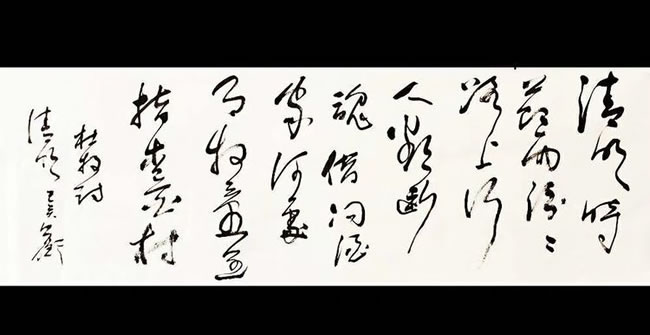 清明時
節雨紛〻
路上行
人欲斷
魂借问酒
家何處
有牧童遥
指杏花村
杜牧诗
清明